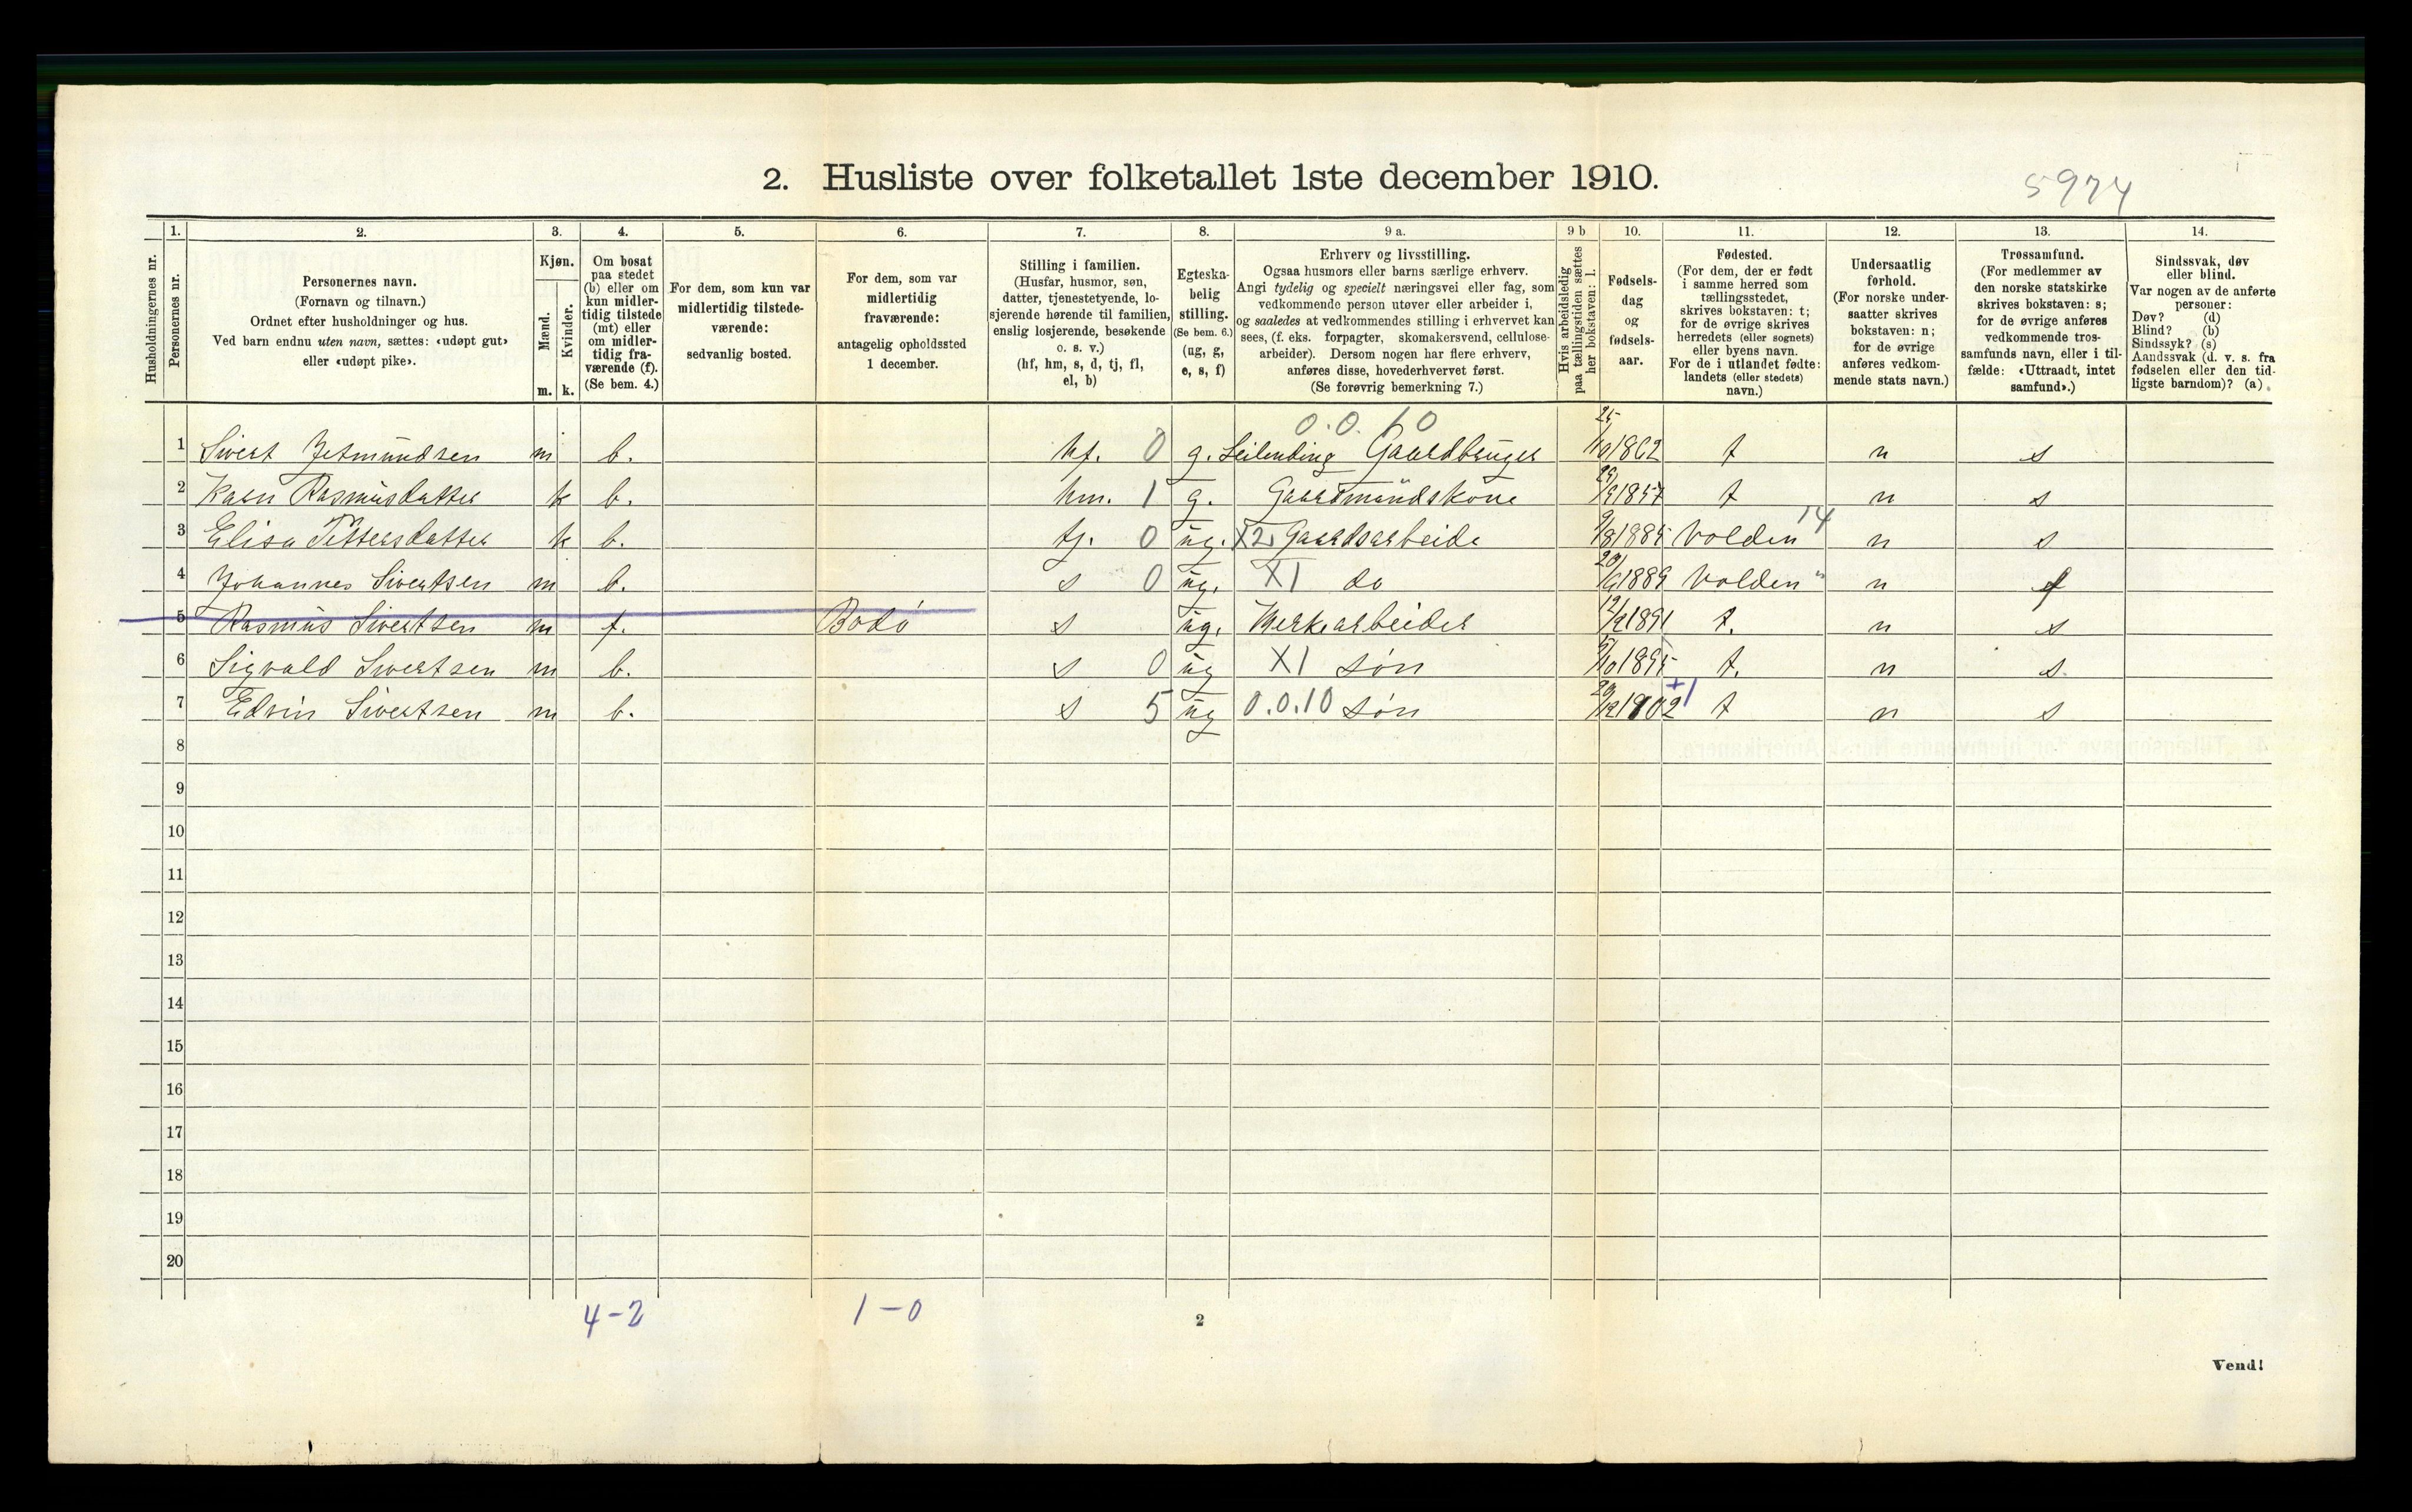 2. Husliste over folketallet 1ste december 1910.
5974
Husholdningernes nr.
1.
Personernes nr.
2.
Personernes navn.
(Fornavn og tilnavn.)
Ordnet efter husholdninger og hus.
Ved barn endnu uten navn, sættes: «udøpt gut»
eller «udøpt pike».
3.
Kjøn.
Mænd.
Kvinder.
m. k.
4.
Om bosat
paa stedet
(b) eller om
kun midler-
tidig tilstede
(mt) eller
om midler-
tidig fra-
værende (f).
(Se bem. 4.)
5.
For dem, som kun var
midlertidig tilstede-
værende:
sedvanlig bosted.
6.
For dem, som var
midlertidig
fraværende:
antagelig opholdssted
1 december.
7.
Stilling i familien.
(Husfar, husmor, søn,
datter, tjenestetyende, lo-
sjerende hørende til familien,
enslig losjerende, besøkende
o. s. v.)
(hf, hm, s, d, tj, fl,
el, b)
8.
Egteska-
belig
stilling.
(Se bem. 6.)
(ug, g,
e, s, f)
9 a.
Erhverv og livsstilling.
Ogsaa husmors eller barns særlige erhverv.
Angi tydelig og specielt næringsvei eller fag, som
vedkommende person utøver eller arbeider i,
og saaledes at vedkommendes stilling i erhvervet kan
sees, (f. eks. forpagter, skomakersvend, cellulose-
arbeider). Dersom nogen har flere erhverv,
anføres disse, hovederhvervet først.
(Se forøvrig bemerkning 7.)
9 b
Hvis arbeidsledig
paa tællingstiden sættes
her bokstaven: l.
10.
Fødsels-
dag
og
fødsels-
aar.
11.
Fødested.
(For dem, der er født
i samme herred som
tællingsstedet,
skrives bokstaven: t;
for de øvrige skrives
herredets (eller sognets)
eller byens navn.
For de i utlandet fødte:
landets (eller stedets)
navn.)
12.
Undersaatlig
forhold.
(For norske under-
saatter skrives
bokstaven: n;
for de øvrige
anføres vedkom-
mende stats navn.)
13.
Trossamfund.
(For medlemmer av
den norske statskirke
skrives bokstaven: s;
for de øvrige anføres
vedkommende tros-
samfunds navn, eller i til-
fælde: «Uttraadt, intet
samfund».)
14.
Sindssvak, døv
eller blind.
Var nogen av de anførte
personer:
Døv? (d)
Blind? (b)
Sindssyk? (s)
Aandssvak (d. v. s. fra
fødselen eller den tid-
ligste barndom)? (a).
0.0.10
1 Sivert Jetmundsen m b. hf. 0 g. Leilending Gaardbruger 25/10 1862 t n s
2 Karn Rasmusdatter k b. hm. 1 g. Gaardmandskone 1857 t n s
3 Elisa Pettersdatter k b. tj. 0 ug. X2 Gaardsarbeide 9/8 1885 Volden 14 n s
4 Johannes Sivertsen m b. s 0 ug. XI do 1889 Volden " n s
5 Rasmus Sivertsen m f. Bodø s ug. Werkarbeider 1891 t. n s
6 Sigvald Sivertsen m b. s 0 ug XI søn 5/10 1895 t. n s.
7 Edvin Sivertsen m b. s 5 ug 0.0.10 søn 1902 +1 t n s
8
9
10
11
12
13
14
15
16
17
18
19
20
4-2 1-0
2
Vend!